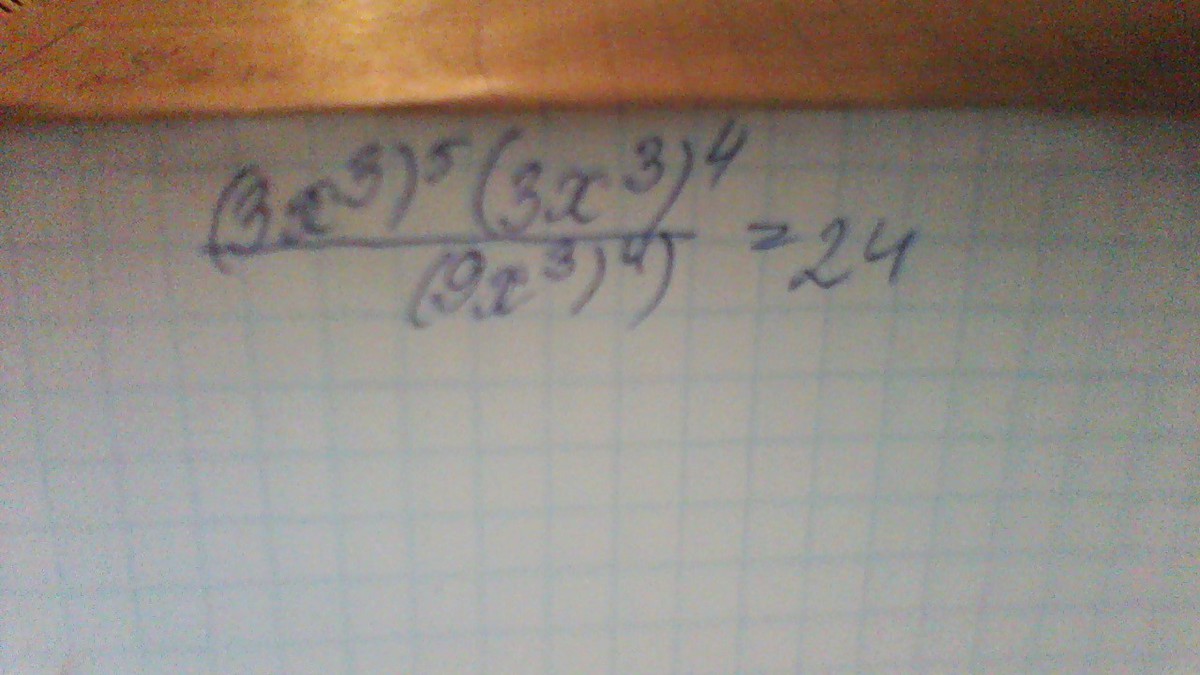 (3x³)⁵(3x³)⁴
(9x³)⁴) = 24